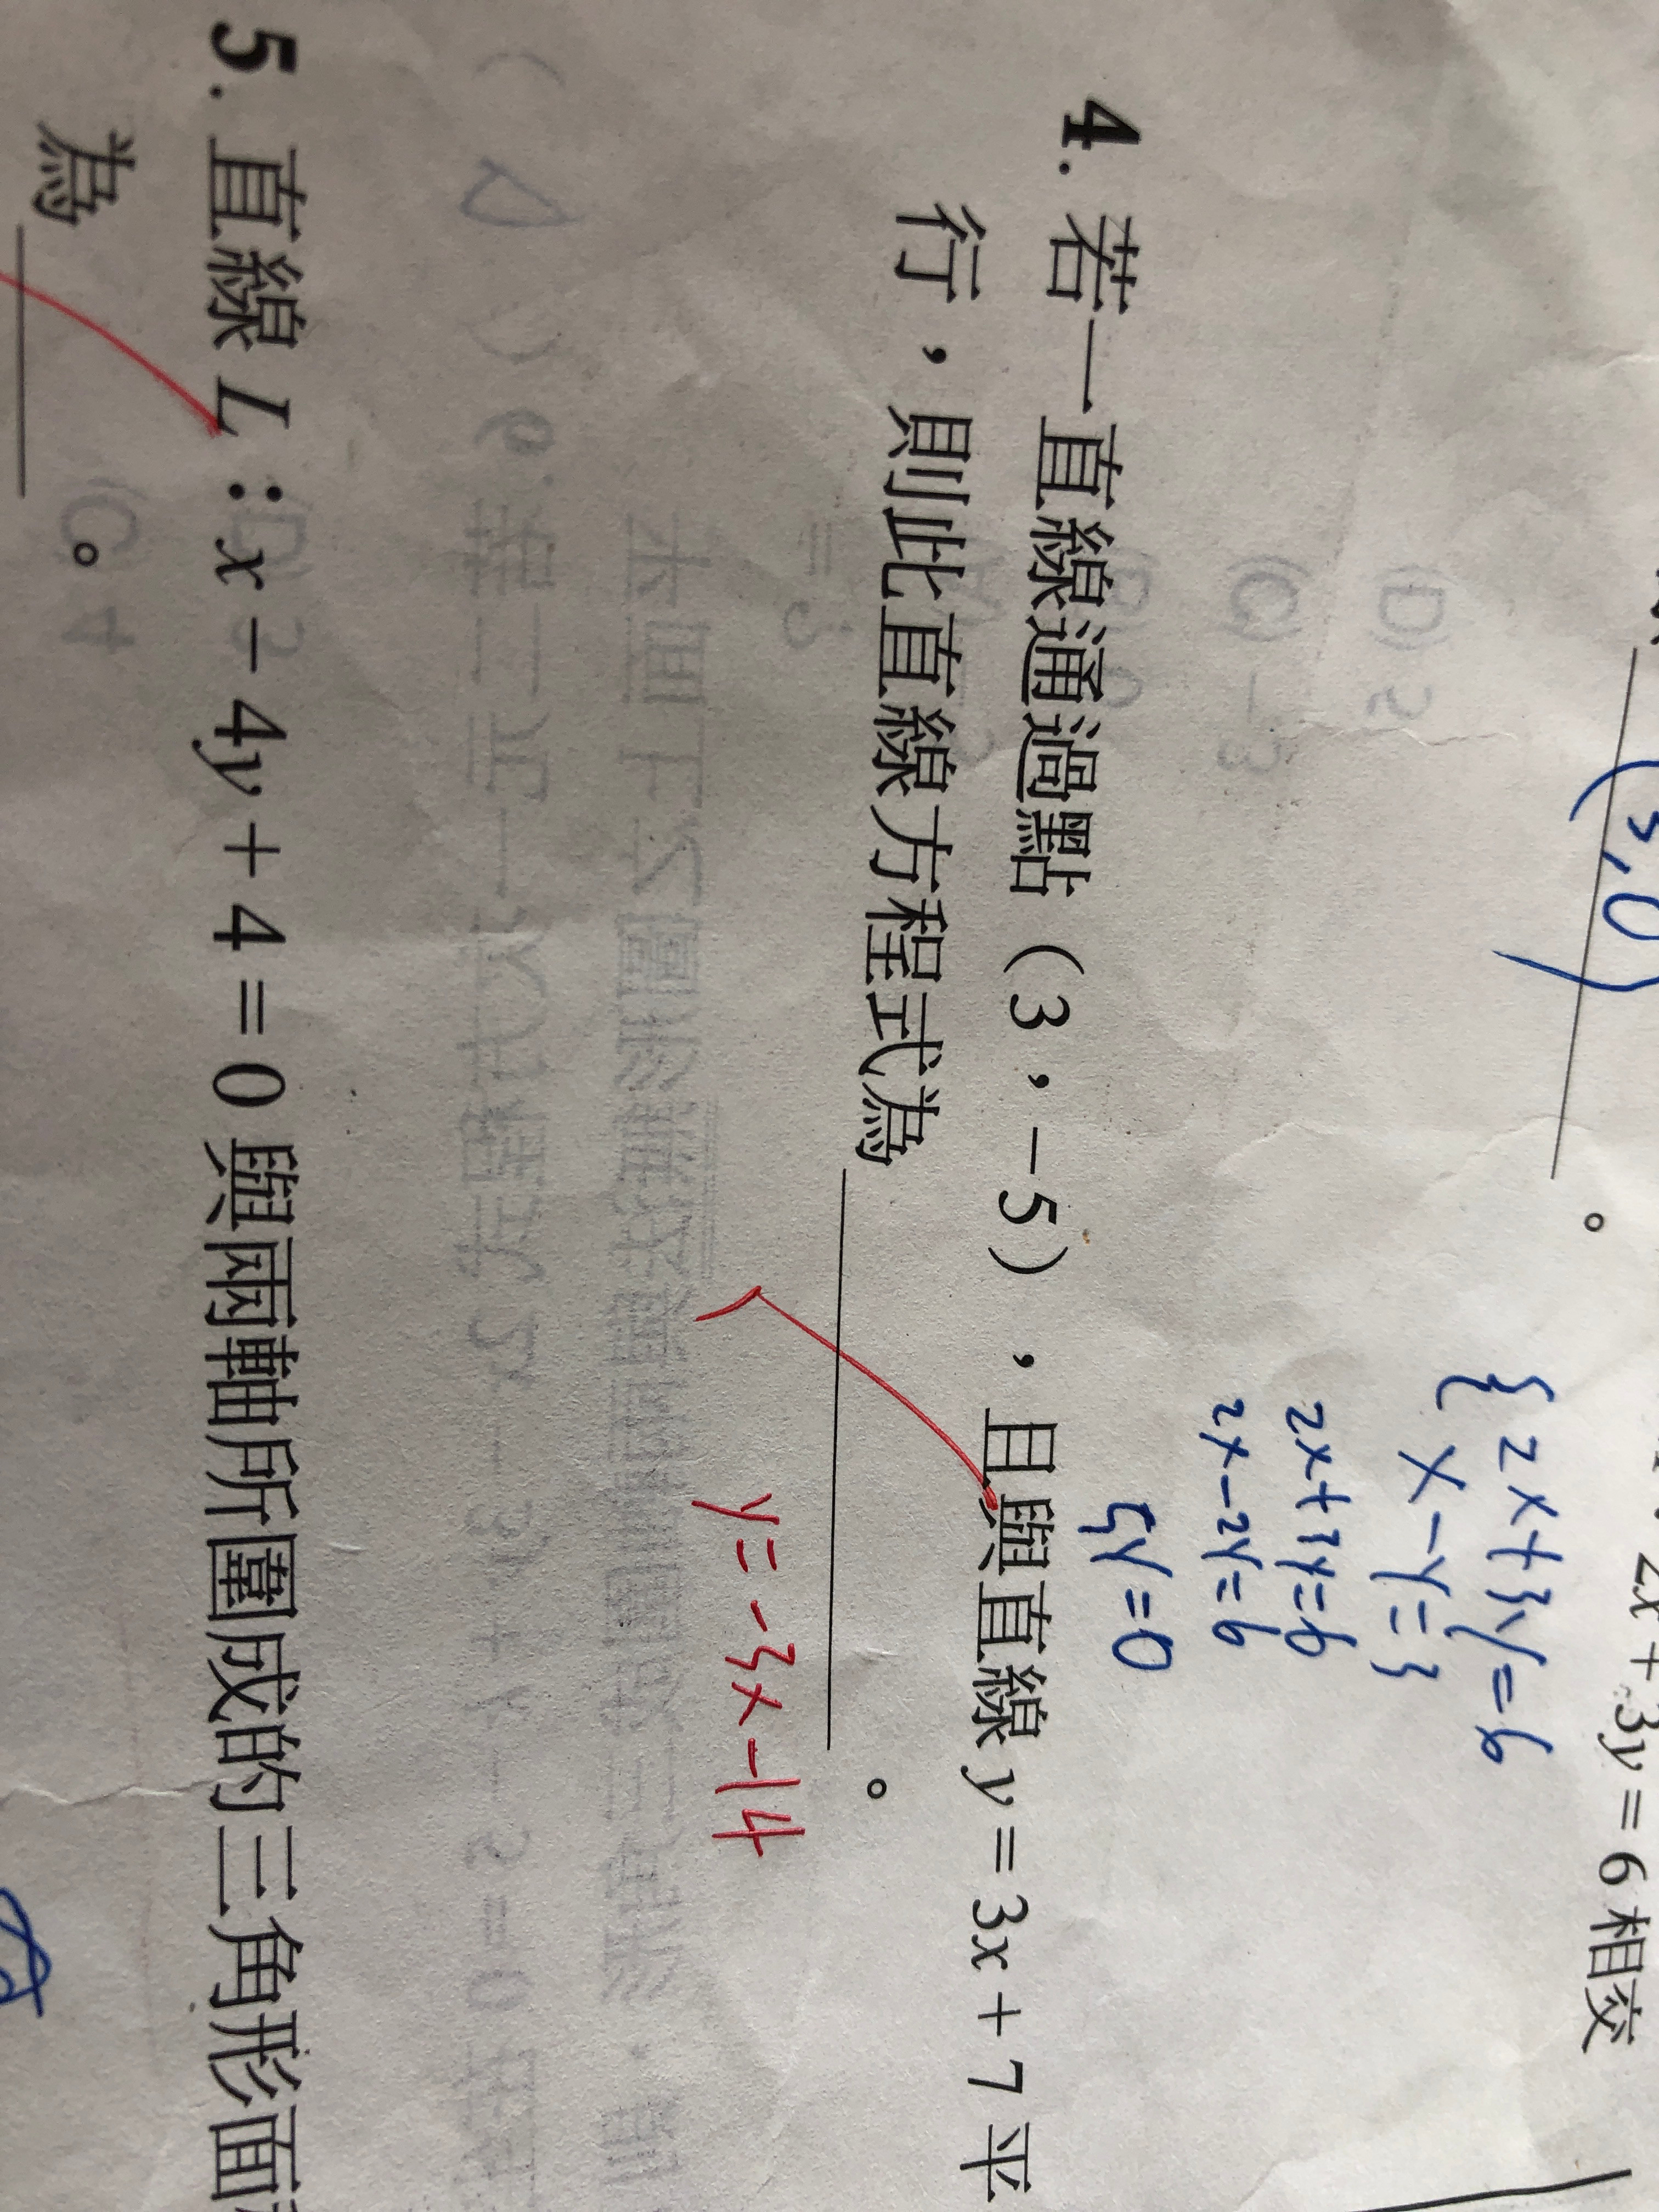 2x + 3y = 6 相交
(3,0)。
{2x+3y=6
x-y=3
2x+3y=6
2x-2y=6
5y=0
4. 若一直線通過點（3，-5），且與直線 y = 3x + 7 平
行，則此直線方程式為。
y=-3x-14
5. 直線 L：x - 4y + 4 = 0 與兩軸所圍成的三角形面
為。